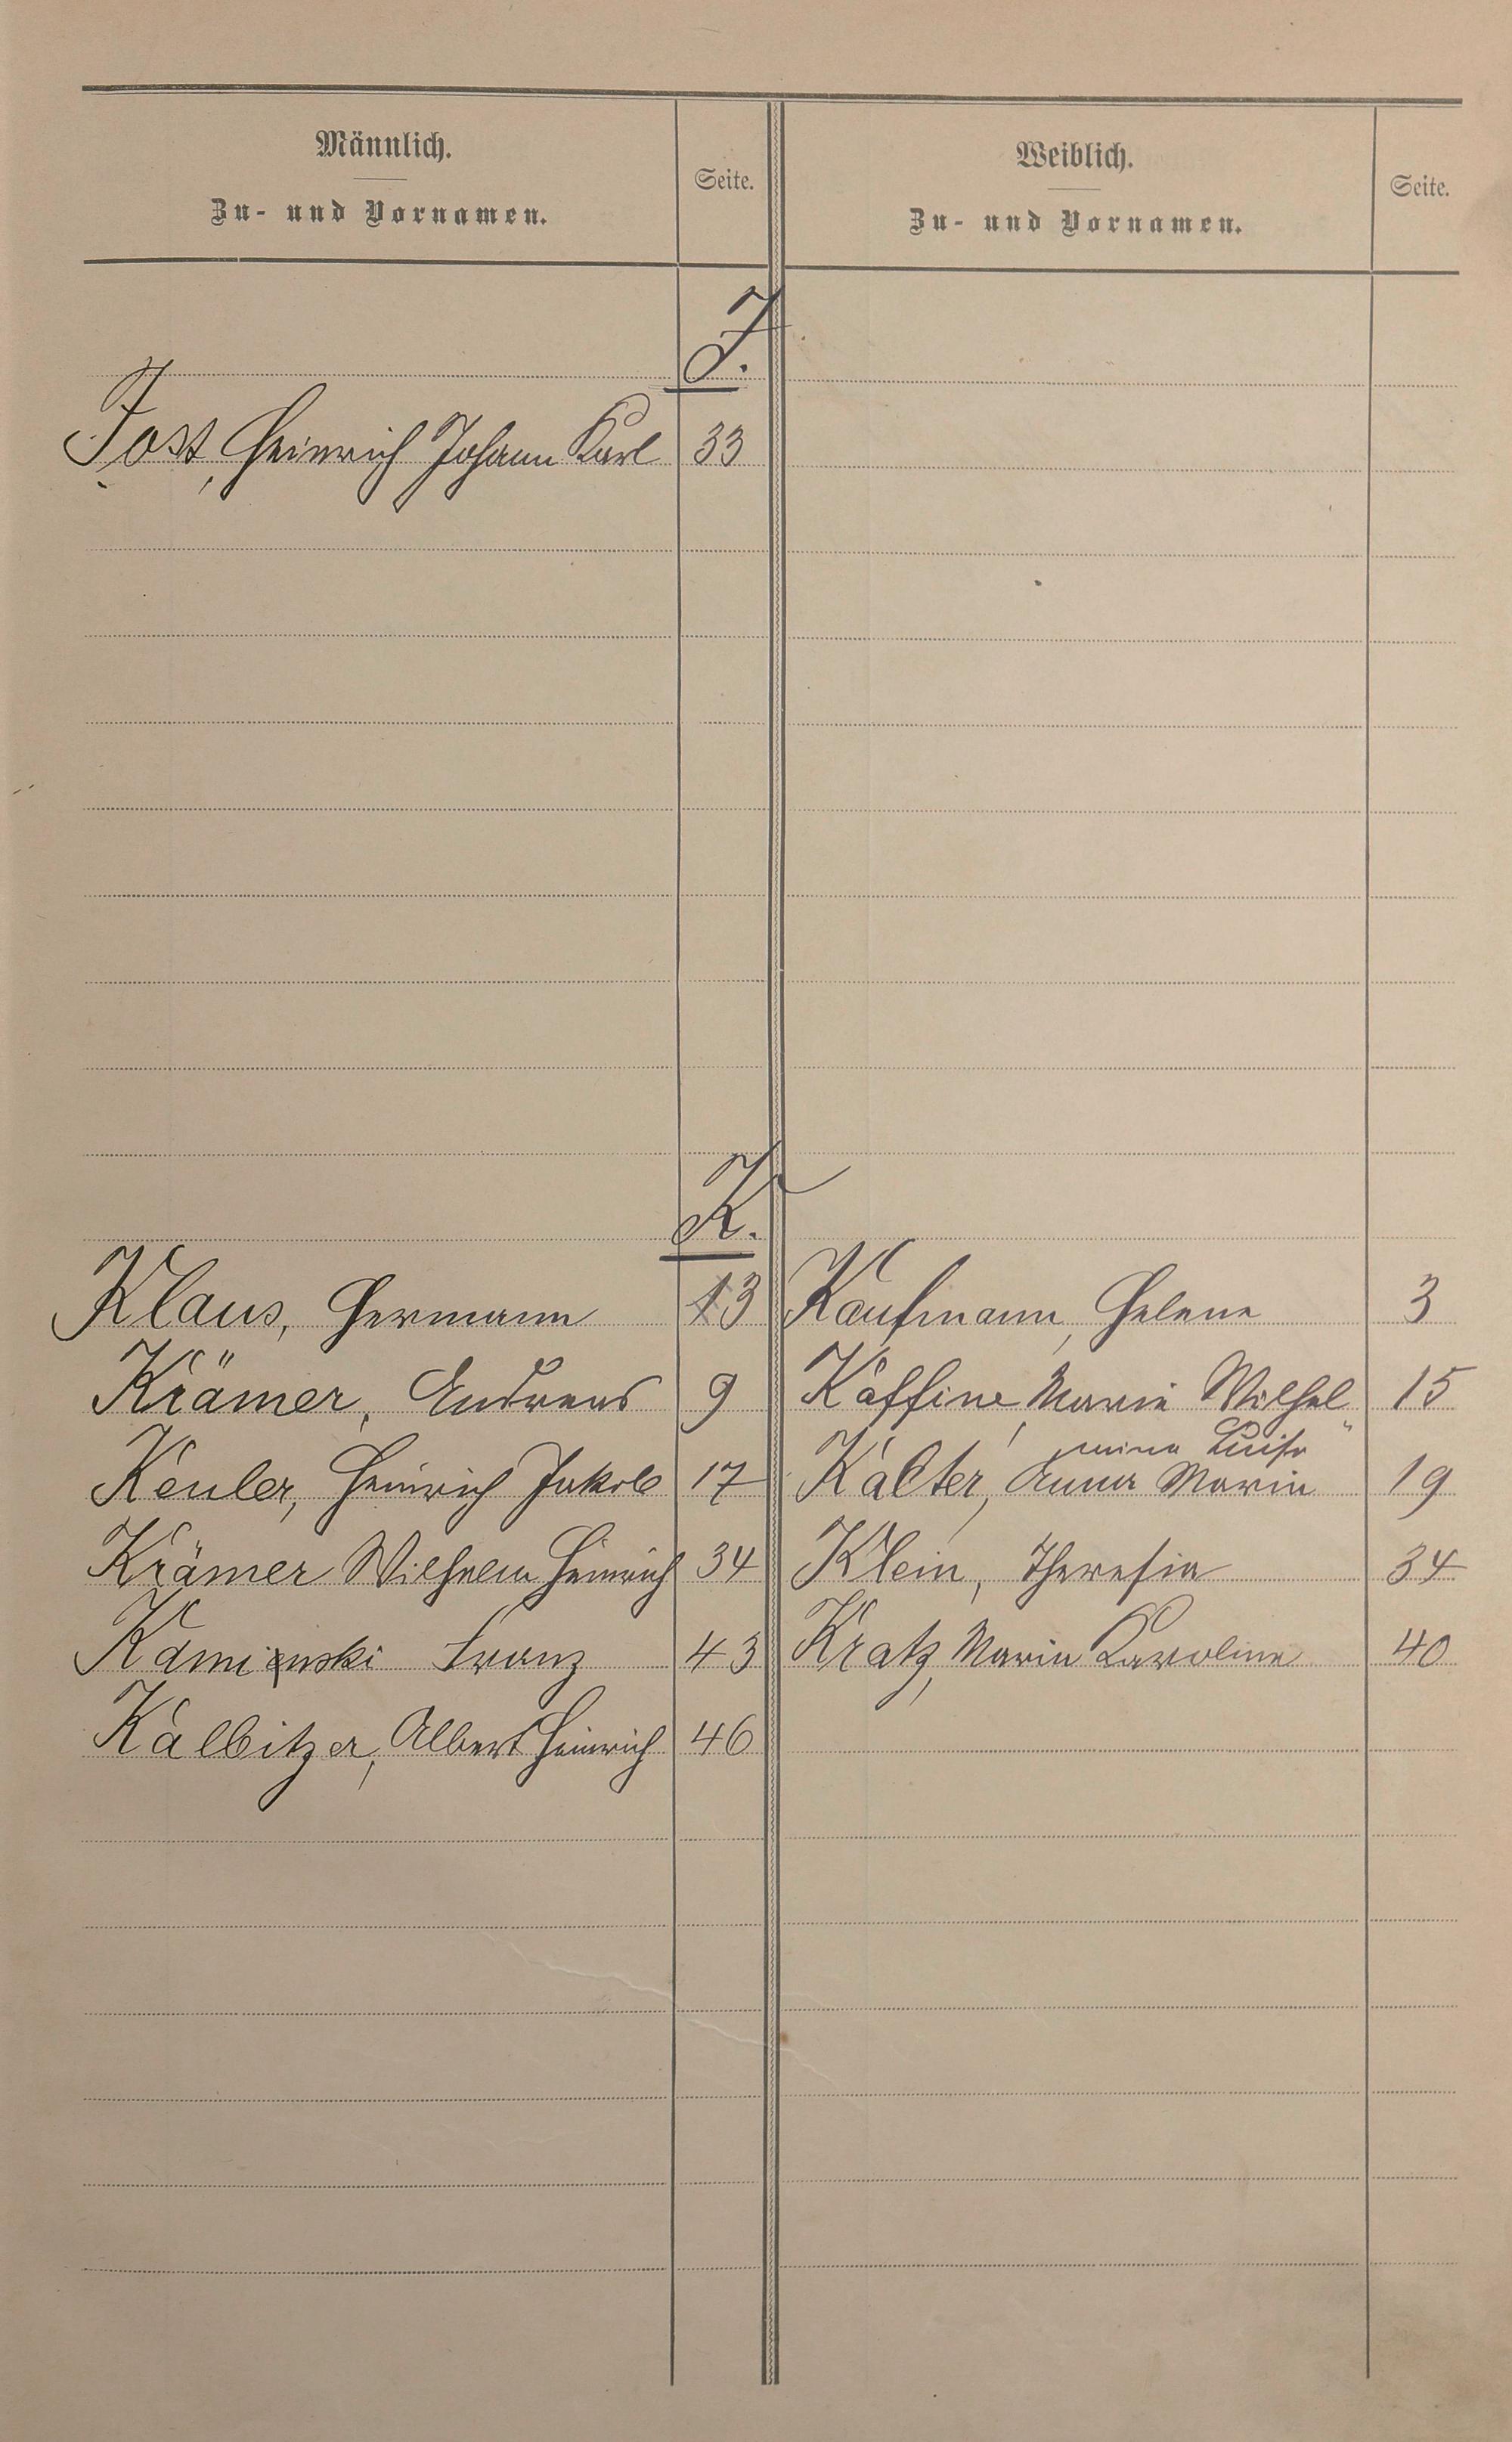 Männlich.
Zu- und Vornamen.
Seite.
Weiblich.
Zu- und Vornamen.
Seite.
J.
Jost, Heinrich Johann Karl 33
K.
Klaus, Hermann 13 Kaufmann, Helene 3
Krämer, Andreas 9 Kaffine, Marie Wilhel„ 15
mina Luise
Keuler, Heinrich Jakob 17 Kalter, Anna Maria 19
Krämer Wilhelm Heinrich 34 Klein, Theresia 34
Kaminski Franz 43 Kratz, Maria Karoline 40
Kalbitzer, Albert Heinrich 46